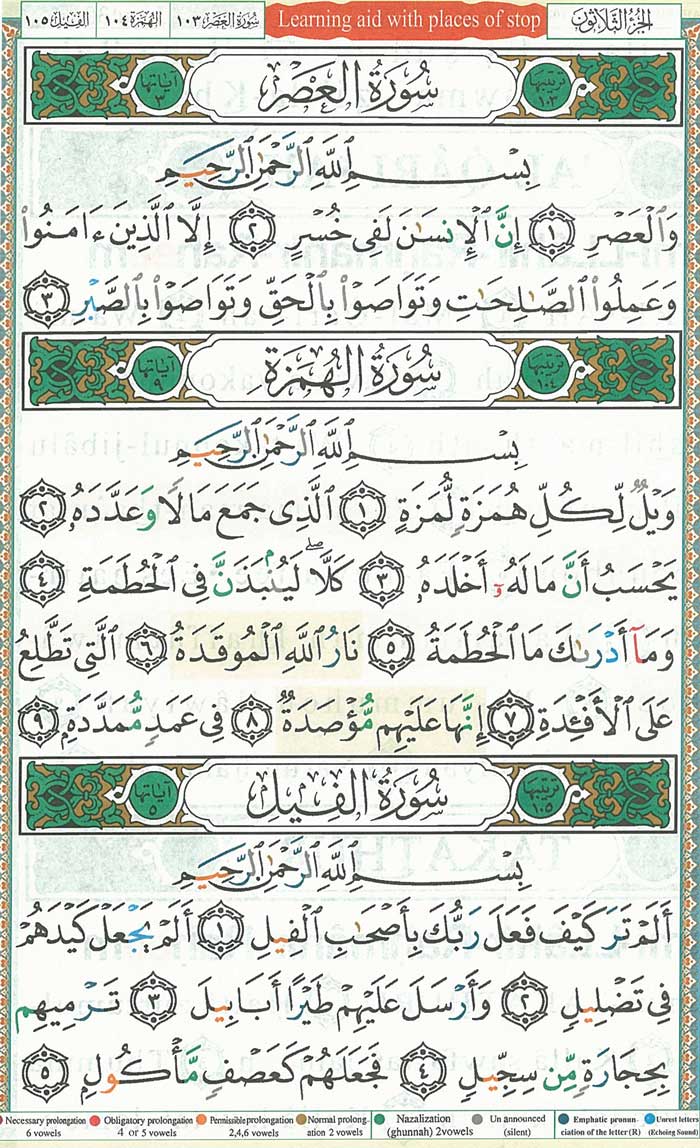 الجزء الثلاثون Learning aid with places of stop سورة العصر ١٠٣ الهمزة ١٠٤ الفيل ١٠٥
ترتيبها ١٠٣ سُورَةُ العَصْرِ آياتها ٣
بِسْمِ اللَّهِ الرَّحْمَٰنِ الرَّحِيمِ
وَالْعَصْرِ ١ إِنَّ الْإِنسَٰنَ لَفِى خُسْرٍ ٢ إِلَّا الَّذِينَ ءَامَنُوا۟
وَعَمِلُوا۟ الصَّٰلِحَٰتِ وَتَوَاصَوْا۟ بِالْحَقِّ وَتَوَاصَوْا۟ بِالصَّبْرِ ٣
ترتيبها ١٠٤ سُورَةُ الهُمَزَةِ آياتها ٩
بِسْمِ اللَّهِ الرَّحْمَٰنِ الرَّحِيمِ
وَيْلٌ لِّكُلِّ هُمَزَةٍ لُّمَزَةٍ ١ الَّذِى جَمَعَ مَالًا وَعَدَّدَهُۥ ٢
يَحْسَبُ أَنَّ مَالَهُۥٓ أَخْلَدَهُۥ ٣ كَلَّا ۖ لَيُنۢبَذَنَّ فِى الْحُطَمَةِ ٤
وَمَآ أَدْرَىٰكَ مَا الْحُطَمَةُ ٥ نَارُ اللَّهِ الْمُوقَدَةُ ٦ الَّتِى تَطَّلِعُ
عَلَى الْأَفْـِٔدَةِ ٧ إِنَّهَا عَلَيْهِم مُّؤْصَدَةٌ ٨ فِى عَمَدٍ مُّمَدَّدَةٍۭ ٩
ترتيبها ١٠٥ سُورَةُ الفِيلِ آياتها ٥
بِسْمِ اللَّهِ الرَّحْمَٰنِ الرَّحِيمِ
أَلَمْ تَرَ كَيْفَ فَعَلَ رَبُّكَ بِأَصْحَٰبِ الْفِيلِ ١ أَلَمْ يَجْعَلْ كَيْدَهُمْ
فِى تَضْلِيلٍ ٢ وَأَرْسَلَ عَلَيْهِمْ طَيْرًا أَبَابِيلَ ٣ تَرْمِيهِم
بِحِجَارَةٍ مِّن سِجِّيلٍ ٤ فَجَعَلَهُمْ كَعَصْفٍ مَّأْكُولٍۭ ٥
Necessary prolongation Obligatory prolongation Permissible prolongation Normal prolong- Nazalization Un announced Emphatic pronun- Unrest letters
6 vowels 4 or 5 vowels 2,4,6 vowels ation 2 vowels (ghunnah) 2vowels (silent) ciation of the letter (R) (Echoing Sound)